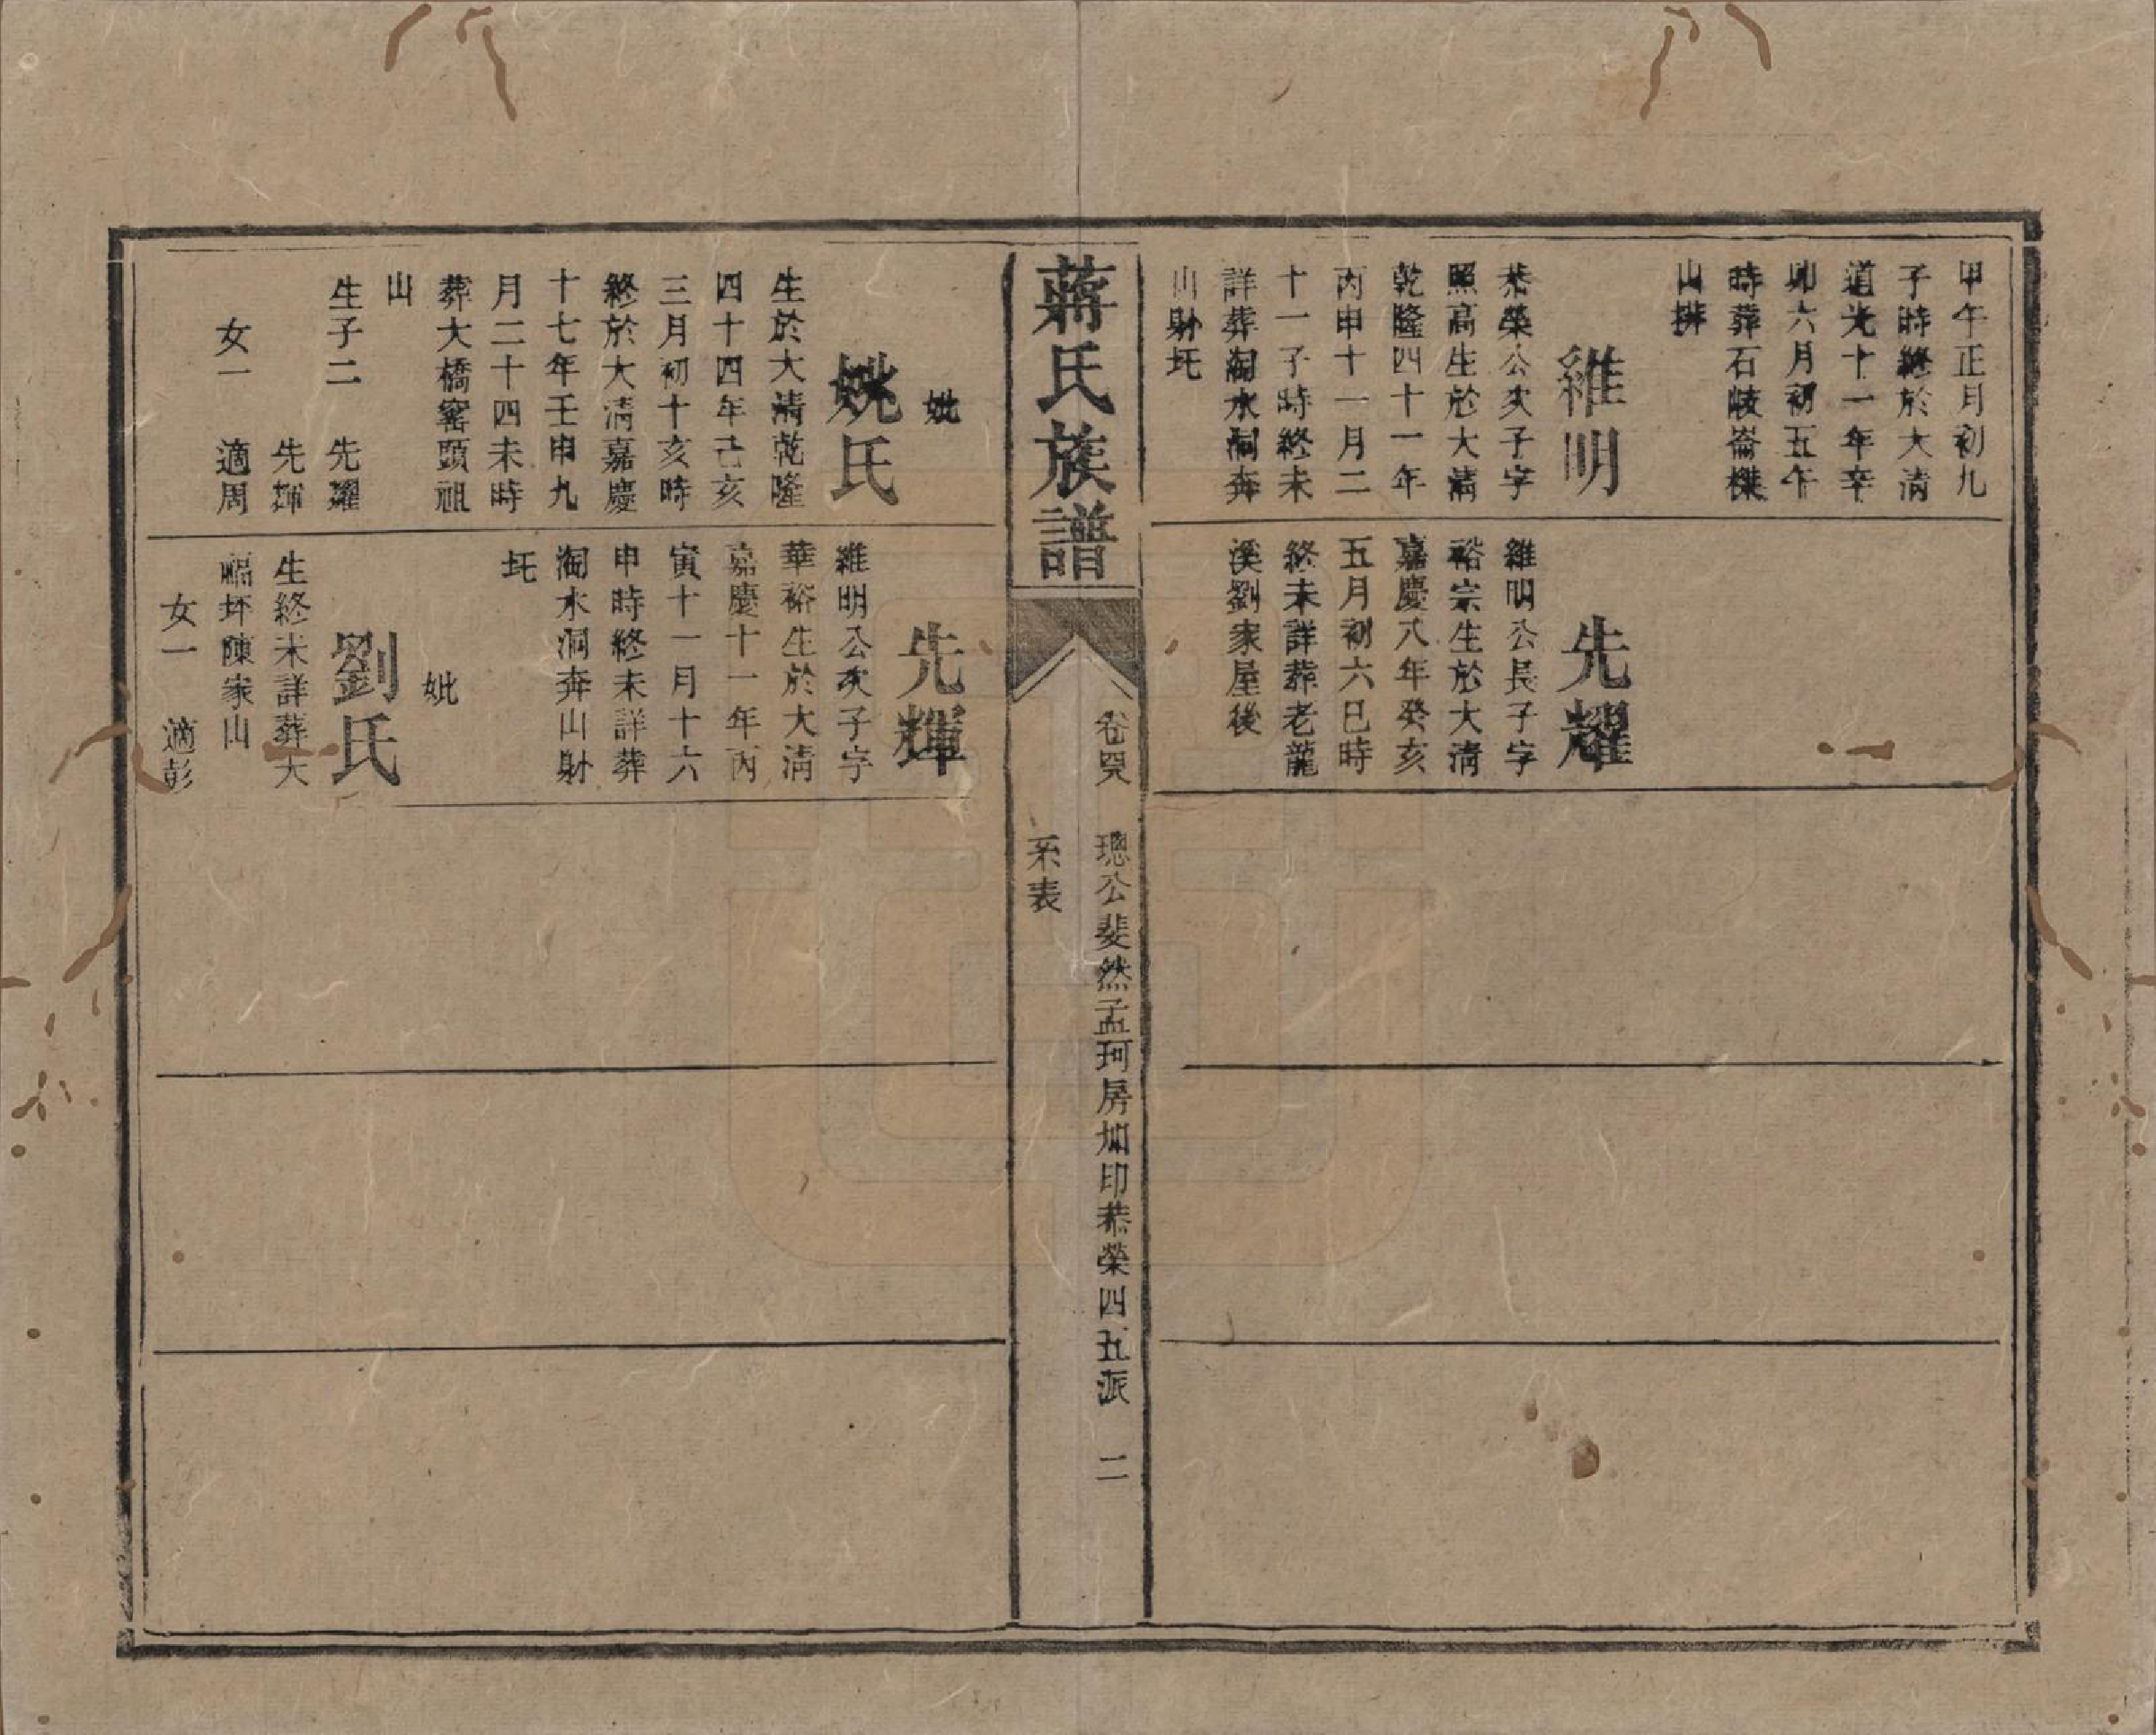 甲午正月初九
子時終於大清
道光十一年辛
卯六月初五午
時葬石岐崙櫟
山排
維明
恭榮公次子字
照高生於大清
乾隆四十一年
丙申十一月二
十一子時終未
詳葬淘水洞奔
山財圫
先耀
維明公長子字
裕宗生於大清
嘉慶八年癸亥
五月初六巳時
終未詳葬老龍
溪劉家屋後
蔣氏族譜
卷 璁公斐然孟珂房加印恭榮四五派 二
系表
妣
姚氏
生於大清乾隆
四十四年己亥
三月初十亥時
終於大清嘉慶
十七年壬申九
月二十四未時
葬大橋窰頭祖
山
生子二 先耀
先輝
女一 適周
先輝
維明公次子字
華裕生於大清
嘉慶十一年丙
寅十一月十六
申時終未詳葬
淘水洞奔山財
圫
妣
劉氏
生終未詳葬大
福坪陳家山
女一 適彭